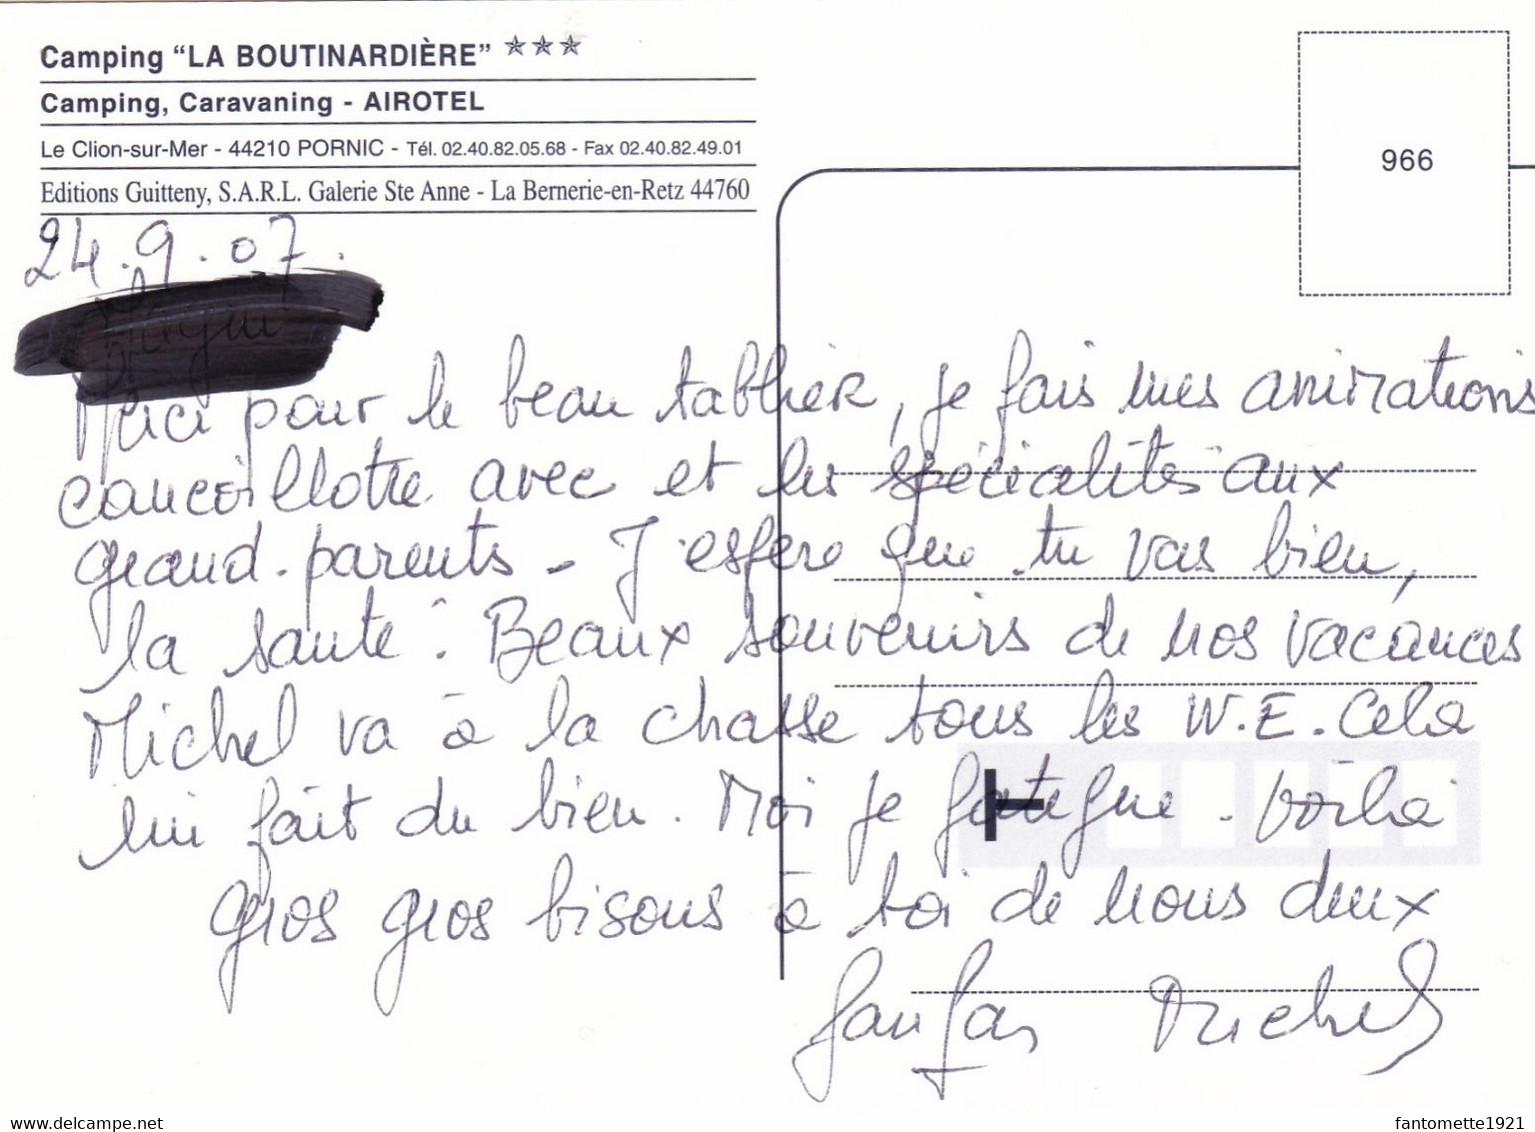 Camping “LA BOUTINARDIÈRE” ★★★
Camping, Caravaning - AIROTEL
Le Clion-sur-Mer - 44210 PORNIC - Tél. 02.40.82.05.68 - Fax 02.40.82.49.01
Editions Guitteny, S.A.R.L. Galerie Ste Anne - La Bernerie-en-Retz 44760
966
24.9.07.
Merci pour le beau tablier, je fais mes animations
cancoillotte avec et les spécialités aux
grand-parents - J'espère que tu vas bien,
la santé : Beaux souvenirs de nos vacances
Michel va à la chasse tous les W.E. Cela
lui fait du bien. Moi je fatigue. Voilà
gros gros bisous à toi de nous deux
Michel
www.delcampe.net
fantomette1921